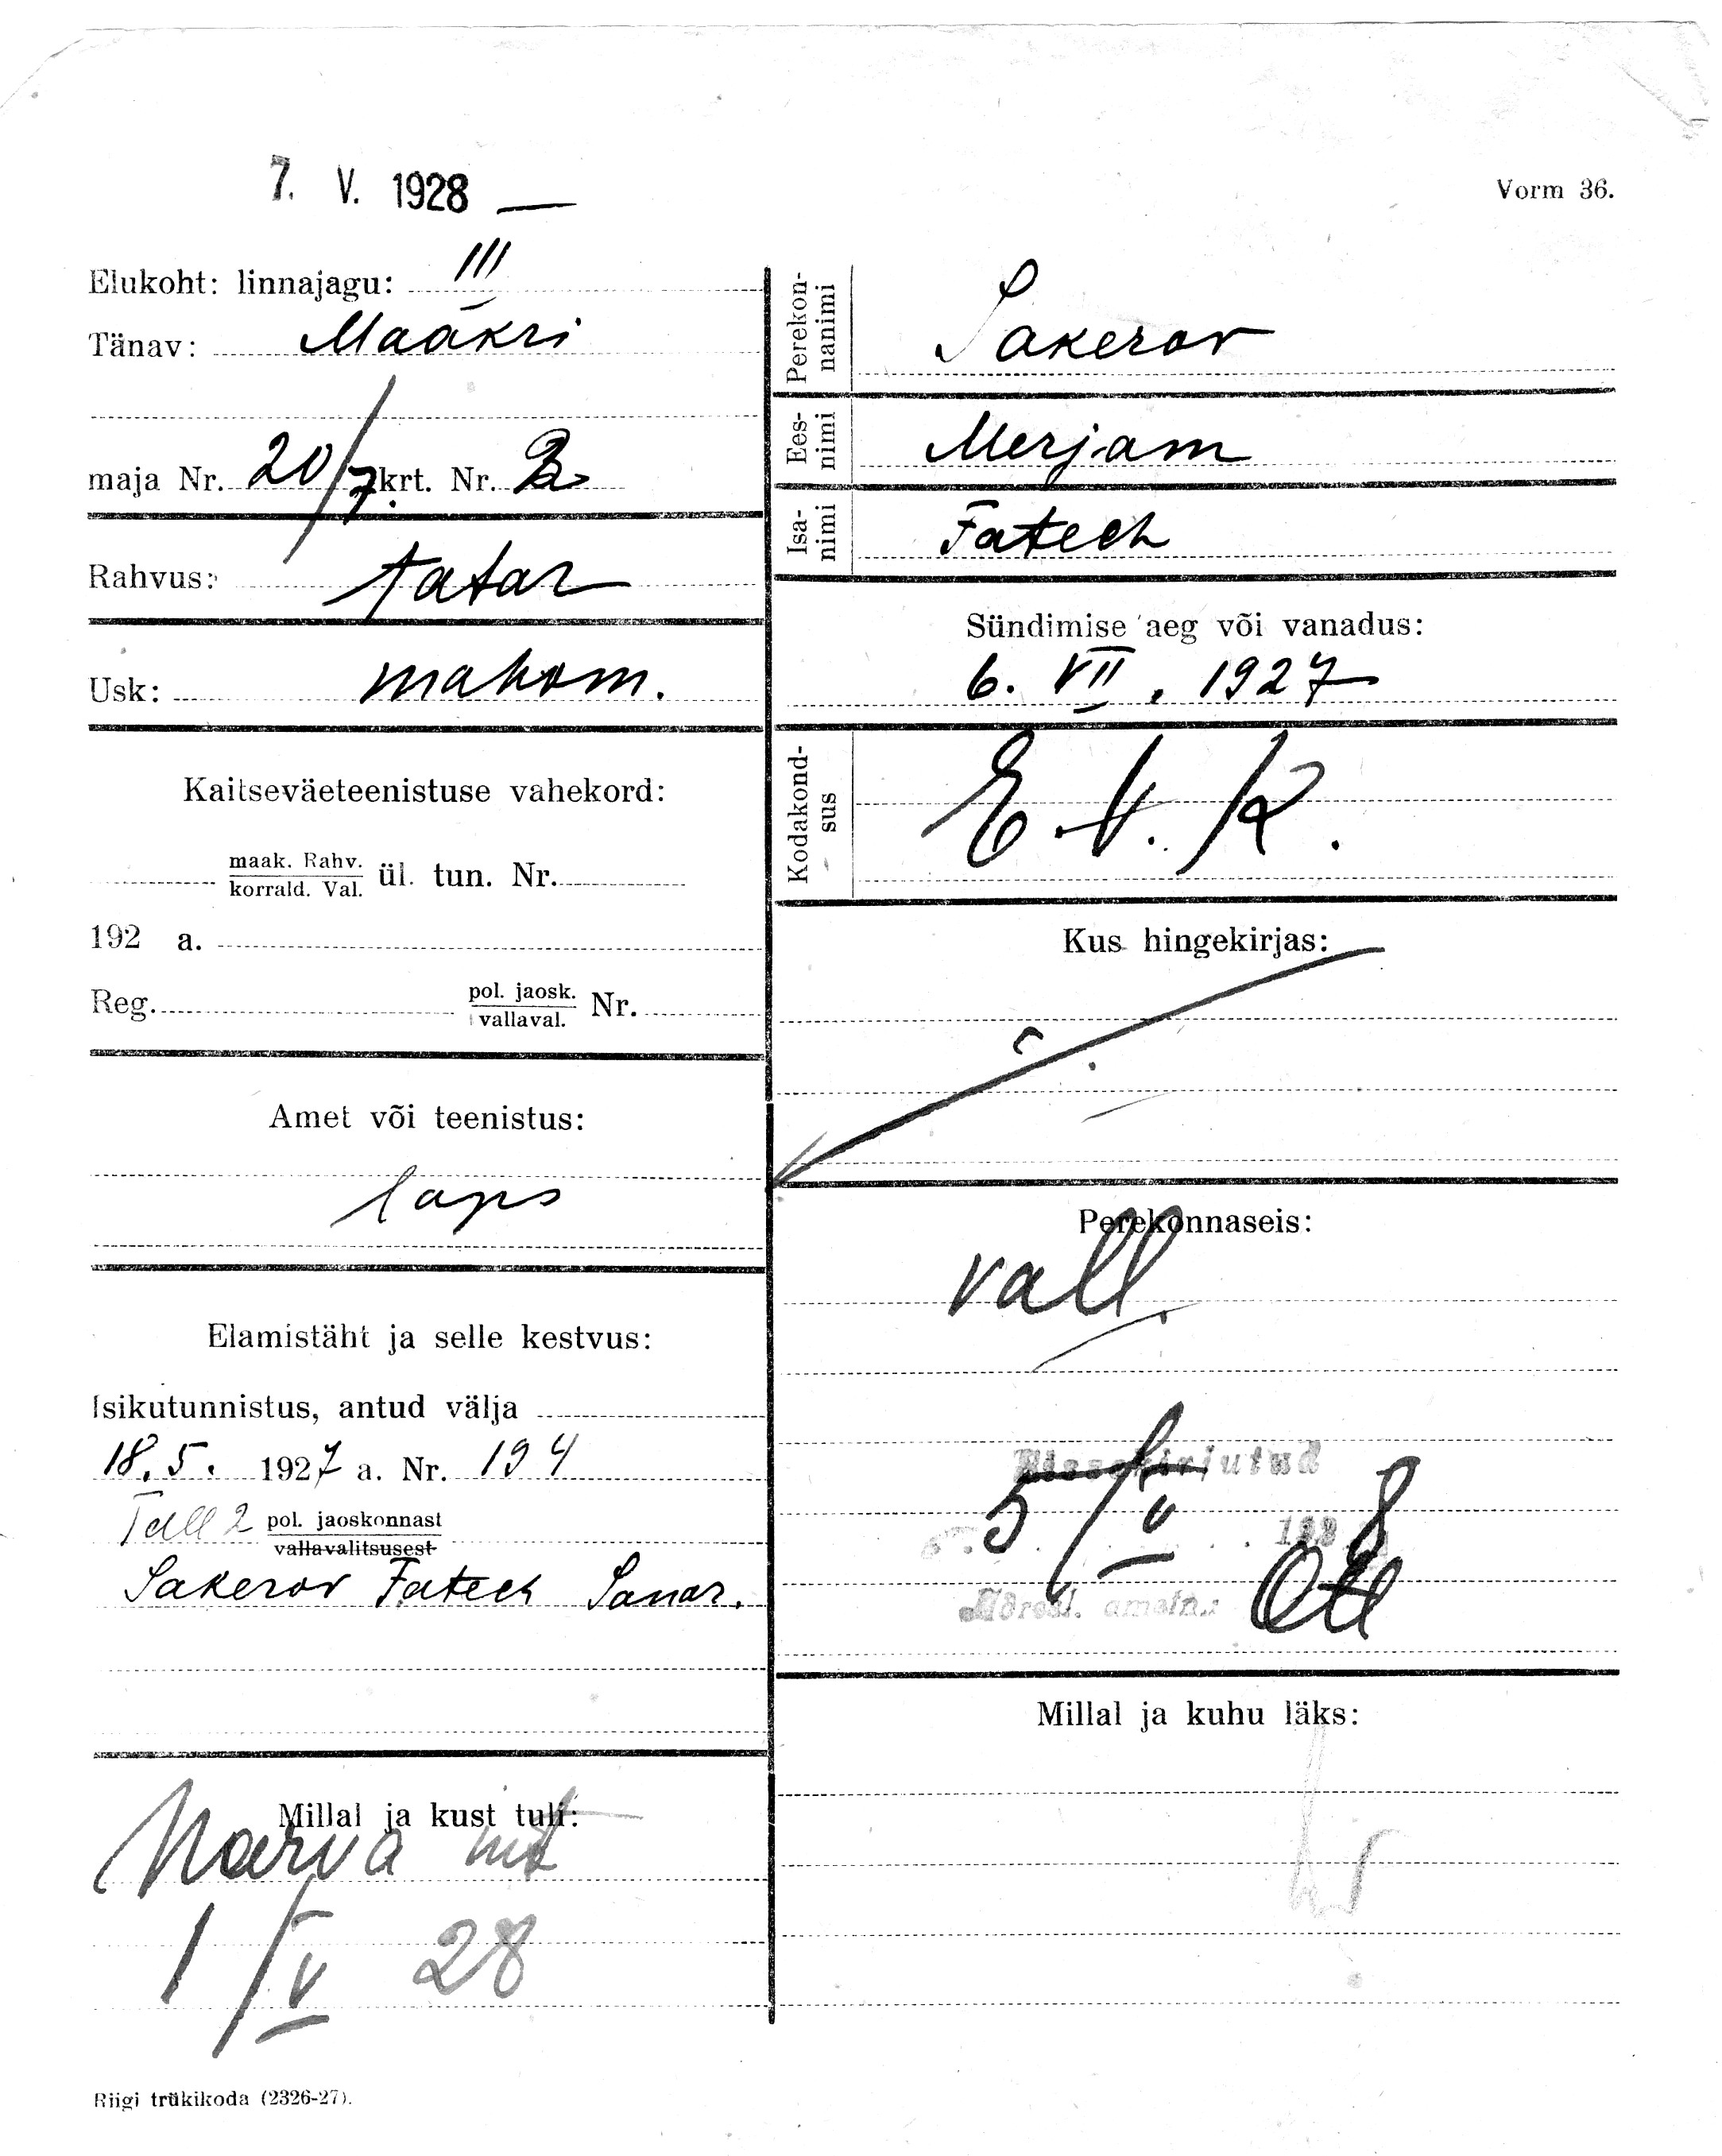 7. V. 1928
Vorm 36.
Elukoht: linnajagu: III
Tänav: Maakri
maja Nr. 20/7. krt. Nr. 2
Rahvus: tatar
Usk: mahom.
Kaitseväeteenistuse vahekord:
maak. Rahv.
korrald. Val. ül. tun. Nr.
192 a.
Reg. pol. jaosk.
vallaval. Nr.
Amet või teenistus:
laps
Elamistäht ja selle kestvus:
Isikutunnistus, antud välja
18.5. 1927 a. Nr. 194
Tall 2 pol. jaoskonnast
vallavalitsusest
Sakerov Fatech Sanar.
Millal ja kust tuli:
Narva
1/V 28
Riigi trükikoda (2326-27).
Perekon-
nanimi
Sakerov
Ees-
nimi
Merjam
Isa-
nimi
Fatech
Sündimise aeg või vanadus:
6. VII. 1927
Kodakond-
sus
E.V.K.
Kus hingekirjas:
Perekonnaseis:
vall.
Sissekirjutud
5/V 8
Ott
Millal ja kuhu läks: